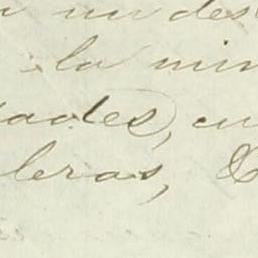 un des
la min
ades, en
leras, &